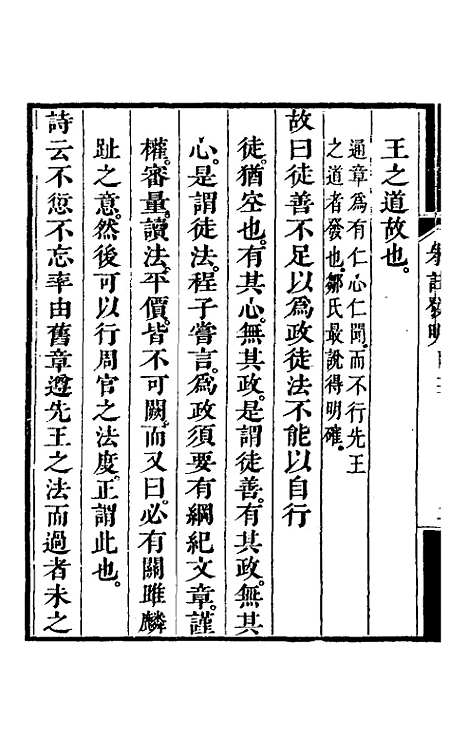 王之道故也。
通章爲有仁心仁聞。而不行先王
之道者發也。鄒氏最說得明確。
故曰徒善不足以爲政徒法不能以自行
徒。猶空也。有其心。無其政。是謂徒善。有其政。無其
心。是謂徒法。程子嘗言。爲政須要有綱紀文章。謹
權。審量。讀法。平價。皆不可闕。而又曰。必有關雎麟
趾之意。然後可以行周官之法度。正謂此也。
詩云不愆不忘率由舊章遵先王之法而過者未之